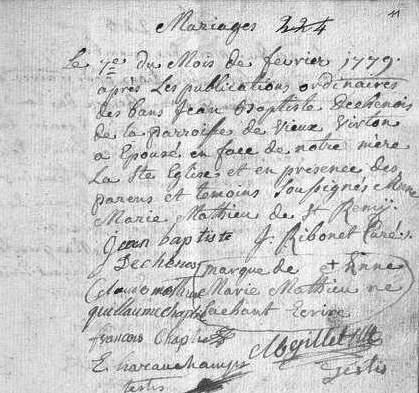 11
Mariages 224
Le 7e du Mois de fevrier 1779.
après Les publications ordinaires
des bans Jean Baptiste Dechenois
de la parroisse de Vieux Virton
a Epousé en face de notre mere
La Ste Eglise et en presence des
parens et temoins soussignés Anne
Marie Mathieu de St Remy.
jean baptiste J. Ribonet Curé.
Dechenois marque de + Anne
Marie Mathieu ne
guillaume chaplie sachant Ecrire
francois Chaplie
testis testis